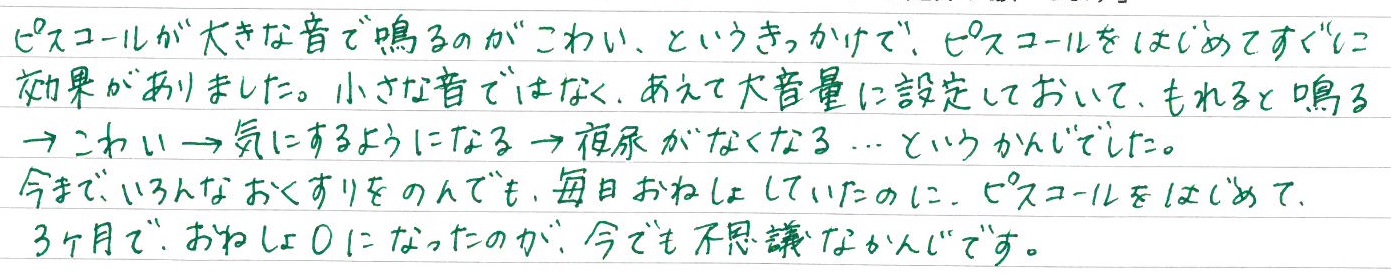 ピスコールが大きな音で鳴るのがこわい、というきっかけで、ピスコールをはじめてすぐに
効果がありました。小さな音ではなく、あえて大音量に設定しておいて、もれると鳴る
→こわい→気にするようになる→夜尿がなくなる…というかんじでした。
今まで、いろんなおくすりをのんでも、毎日おねしょしていたのに、ピスコールをはじめて、
3ヶ月で、おねしょ0になったのが、今でも不思議なかんじです。